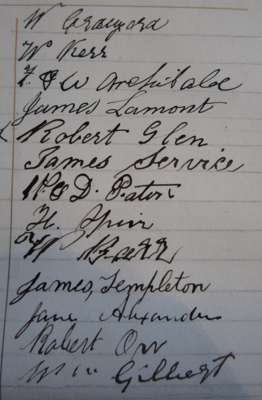 W Crawford
Wm Kerr
F & W Archibald
James Lamont
Robert Glen
James Service
W & D. Paton
H. Speir
W Barr
James, Templeton
Jane Alexander
Robert Orr
Wm Gilbert